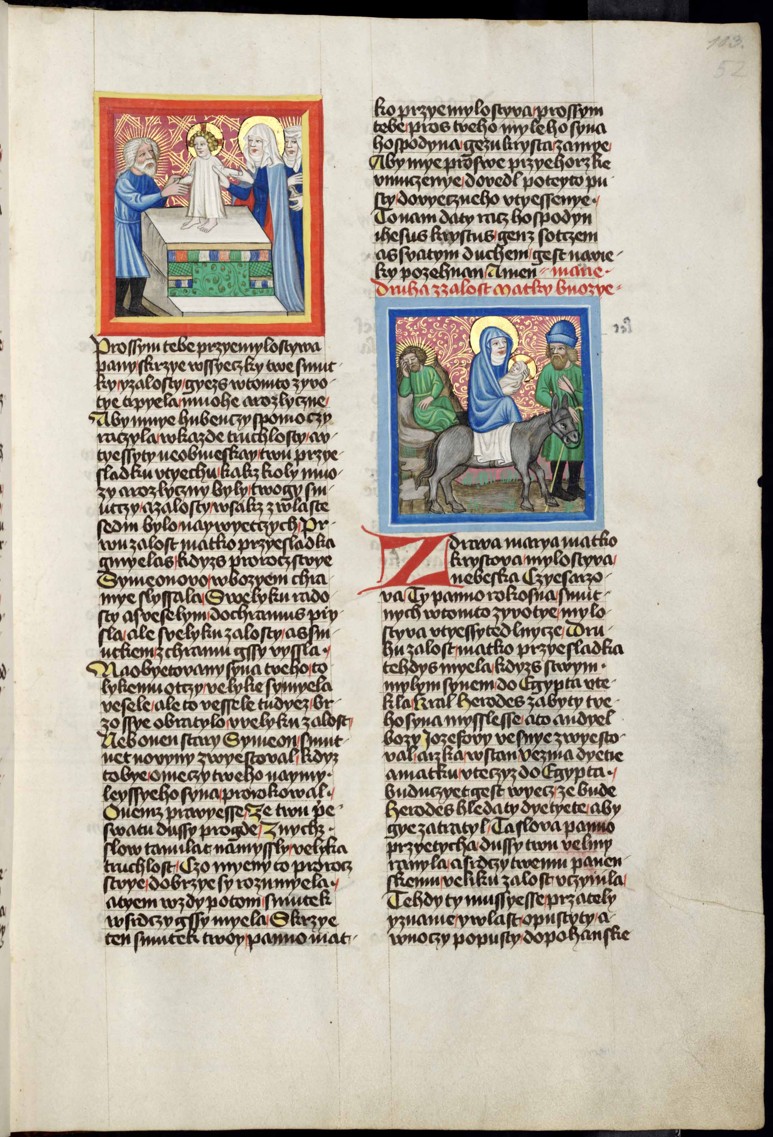 113.
52
Prossym tebe przyemylostywa
pany skrzye wssyeczky twe smut
ky yzalosty gyezs wtomto zywo
tye trpyela mnohe arozlyczne
Aby mnye hubenczy spomoczy
raczyla wkazde truchlosty aw
tyessyty neobmeskay twu przye
sladku vtyechu kakz koly mno
zy arozlyczny byly twogy sm
utczy azalosty wsakz zwlasste
sedm bylo naywyetczych Pr
wu zalost matko przyesladka
gmyelas kdyzs proroczstwye
Symeonowo wbozyem chra
mye slyssala Swelyku rado
sty aswesselym dochramus przy
sla ale swelyku zalosty assm
utkem zchramu gssy wyssla
Naobyetowany syna tweho to
lykemu otczy welyke sy myela
wesele ale to wessele tudyez br
zo ssye obratylo wwelyku zalost
Neb onen stary Symeon smut
net nowyny zwyestowal kdyz
tobye omeczy tweho naymy
leyssyeho syna prorokowal
Onemz prawyesse Ze twu prze
swatu dussy progde Znychz
slow tamilat namyssly welyka
truchlost Czo myeny to prorocz
stwye dobrzye sy rozumyela
atyem wzdy potom smutek
wsrdczy gssy myela Skrzye
ten smutek twoy panno mat
ko przyemylostywa prossym
tebe pros tweho myleho syna
hospodyna gezu krysta zamye
Aby mye prosswe przyehorzke
vmuczenye dowedl poteyto pu
sty dowyeczneho vtyessenye
To nam daty racz hospodyn
ihesus krystus genz sotczem
asswatym duchem gest nawie
ky pozehnan Amen marie
druha zzalost Matky buozye
Zdrawa marya matko
krystowa mylostywa
nebeska Czyesarzo
wa Ty panno rokosna smut
nych wtomto zywotye mylo
stywa vtyessytedlnycze Dru
hu zalost matko przyesladka
tehdys myela kdyzs stwym
mylym synem do Egypta vte
kla Kral Herodes zabyty twe
ho syna mysslesse ato andyel
bozy Jozefowy wesnye zwyesto
wal arzka wstan wezma dyetie
amatku vteczyz do Egypta
buduczyet gest wyecz ze bude
Herodes hledaty dyetyete aby
gye zatratyl Ta slowa panno
przyetycha dussy twu welmy
ranyla a srdczy twemu panen
skemu weliku zalost vczynila
Tehdy ty mussyesse przately
yznamе ywlast opustyty a
wnoczy popusty dopohanske